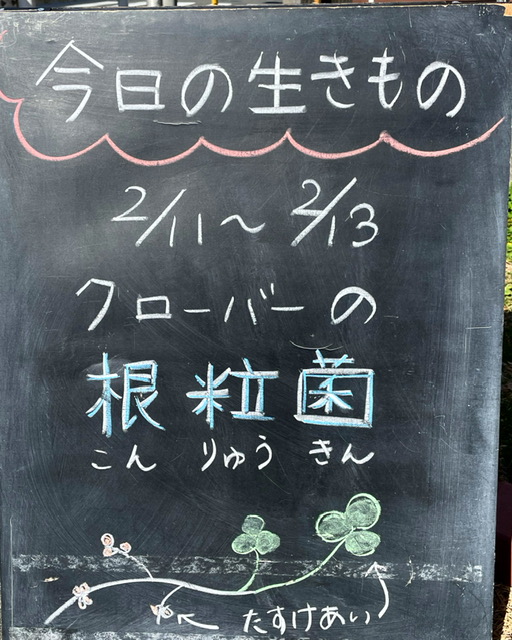 今日の生きもの
2/11～2/13
クローバーの
根粒菌
こん りゅう きん
たすけあい